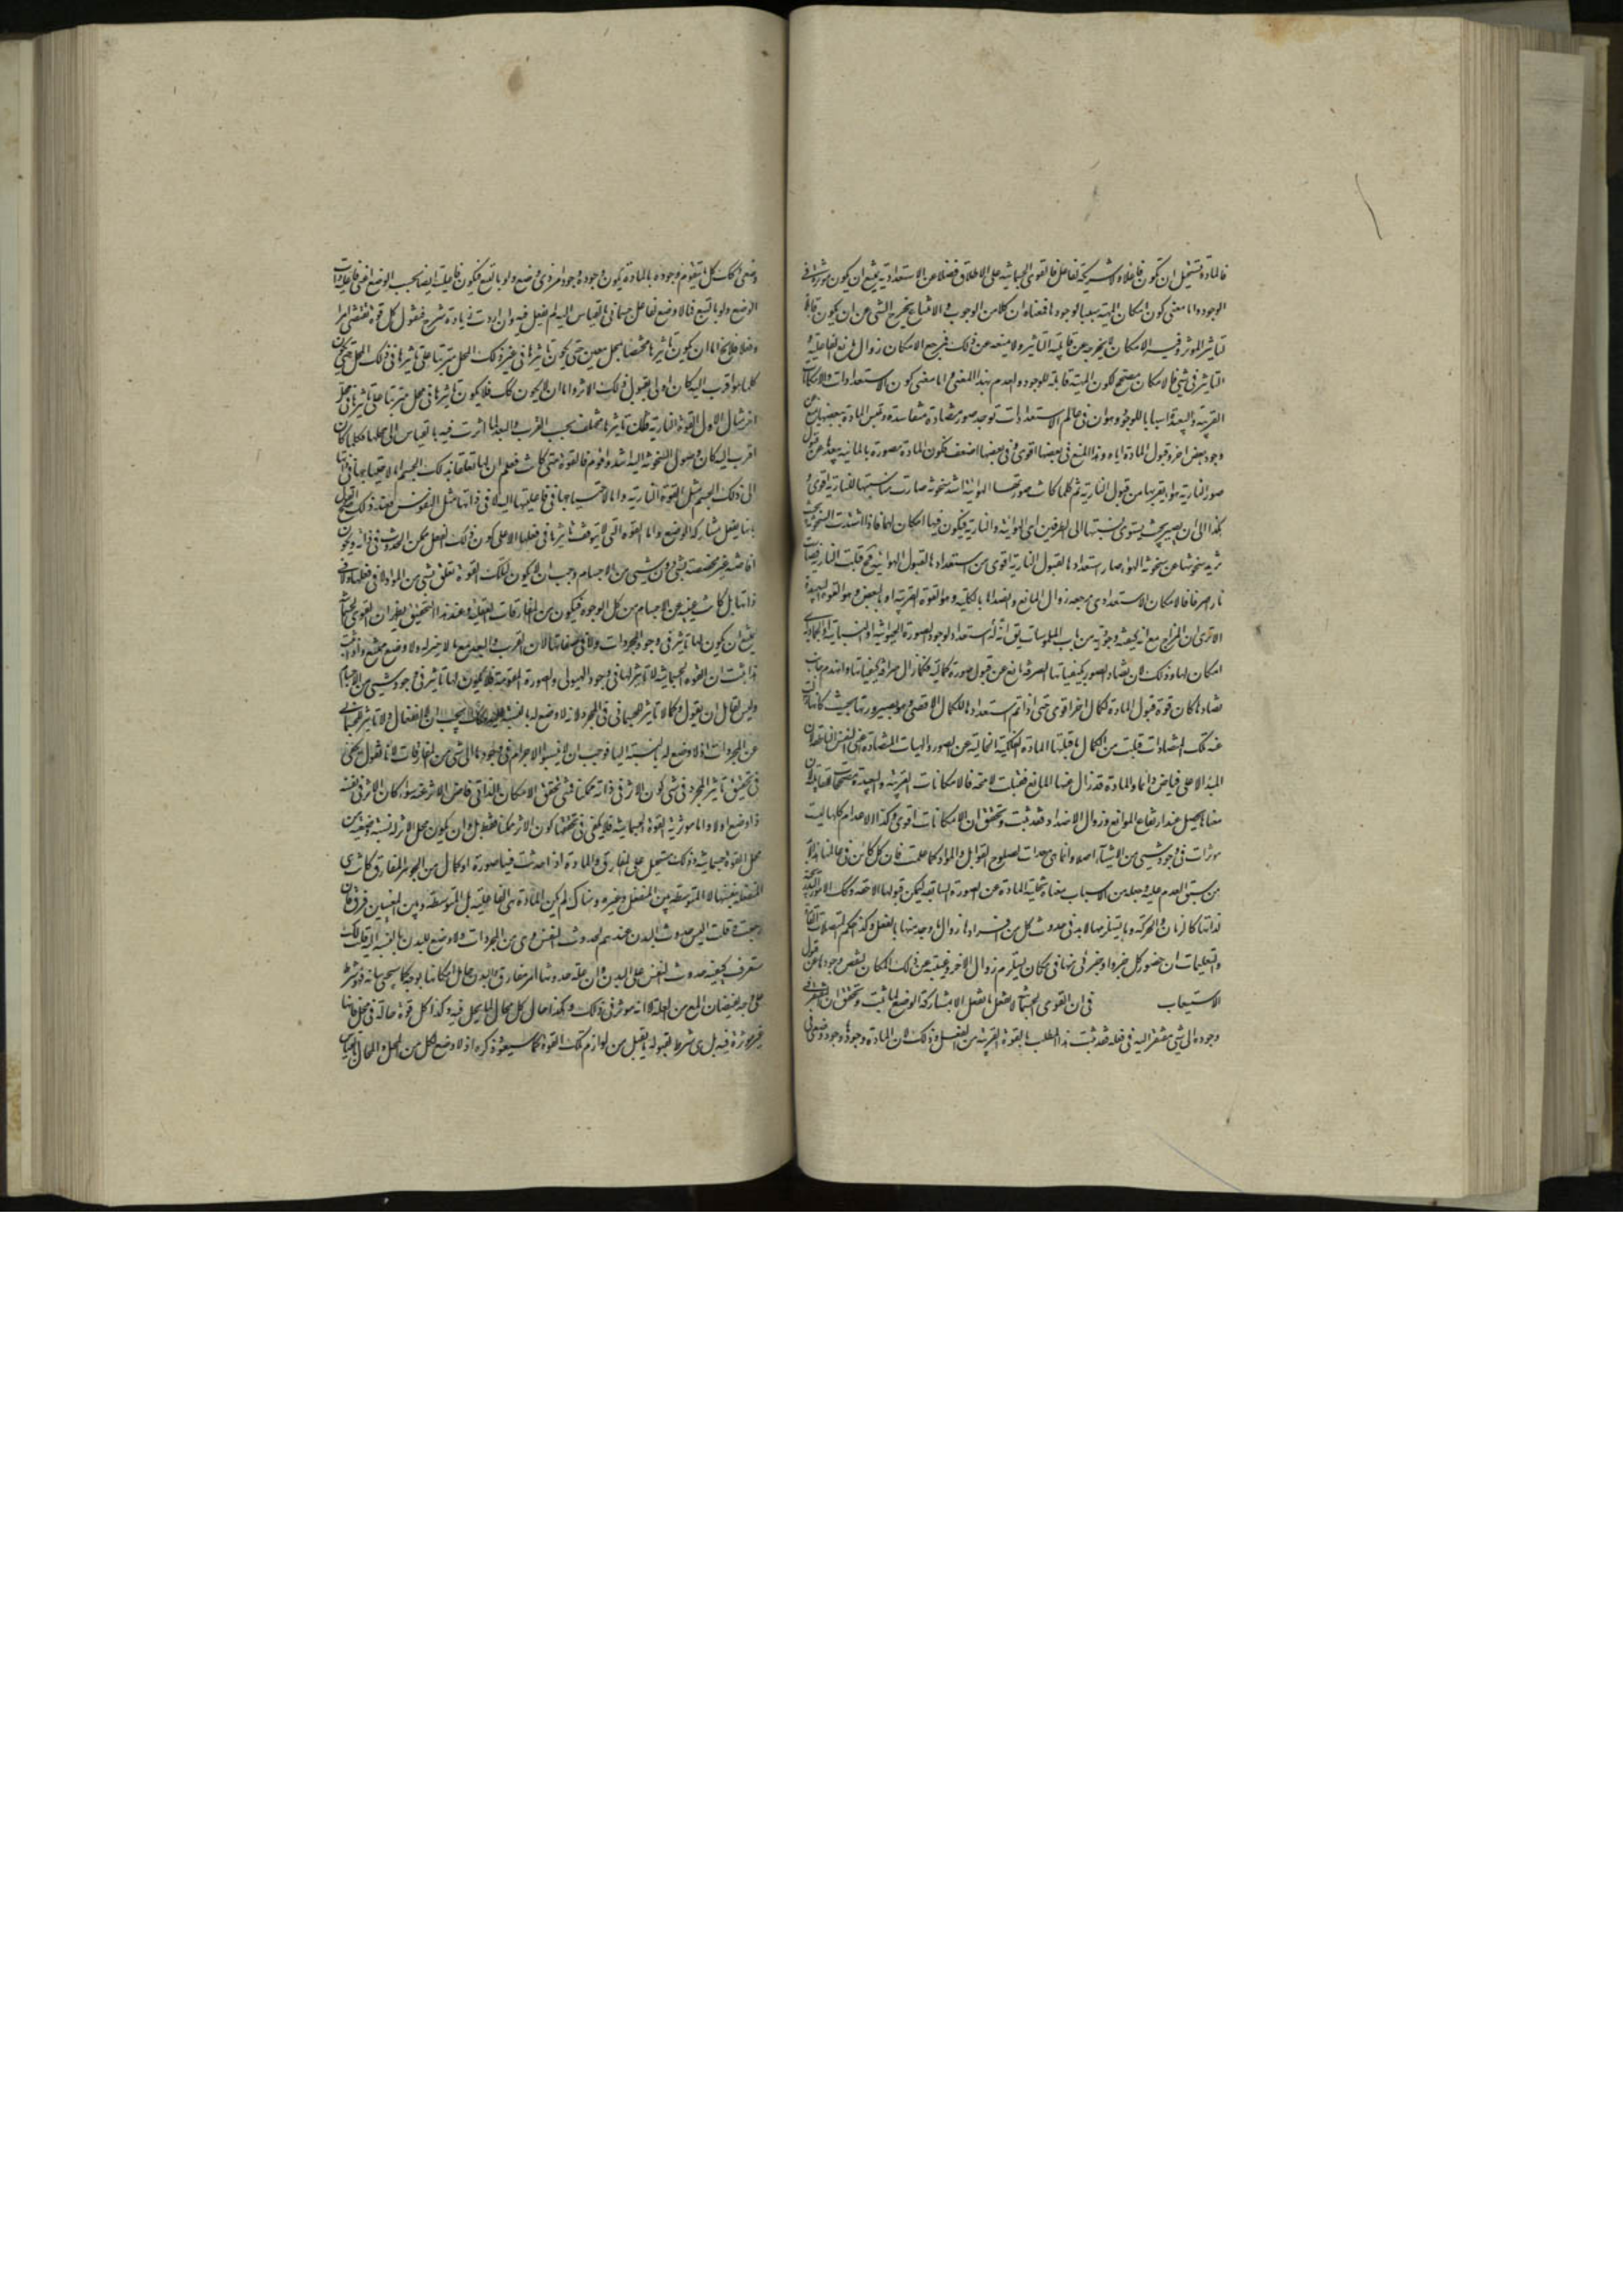 فالمادة تستحيل ان تكون فاعلا ولا شريكة لفاعل فالقوى الجسمانية على الاطلاق فضلا عن الاستعدادية يمتنع ان يكون مؤثرة في
الوجود واما معنى كون امكان المهية سببا لوجودها فمعناه ان كلا من الوجوب والامتناع يخرج الشئ عن ان يكون قابلا
لتاثير المؤثر وفيه الامكان لا يخرجه عن قابلية التاثير ولا يمنعه عن ذلك فمرجع الامكان زوال المانع الفاعلية و
التاثير في شئ فالامكان مصحح لكون المهية قابلة للوجود والعدم بهذا المعنى واما معنى كون الاستعدادات والامكانات
القريبة والبعيدة اسبابا للوجود وهو ان في عالم الاستعدادات توجد صور متضادة متفاسدة وتلبس المادة ببعضها يمنع عن
وجود بعض اخر وقبول المادة اياه وهذا المنع في بعضها اقوى وفي بعضها اضعف فكون المادة مصورة بالمائية يبعدها عن قبول
صورة النارية والهوائية يقربها من قبول النارية ثم كلما كانت صورتها الهوائية اشد سخونة صارت مناسبتها للنارية اقوى و
هكذا الى ان يصير بحيث يستوى نسبتها الى الطرفين اى الهوائية والنارية فيكون فيها امكان لهما فاذا اشتدت السخونة بحيث
تزيد سخونتها عن سخونة الهواء صار استعدادها لقبول النارية اقوى من استعدادها لقبول الهوائية فح قبلت النارية فصارت
نارا صرفا فالامكان الاستعدادى مرجعه زوال المانع والضد اما بالكلية وهو القوة القريبة او بالبعض وهو القوة البعيدة
الا ترى ان المزاج مع انه كيفية وجودية من باب الملموسات يق انه استعداد لوجود الصورة الحيوانية او النباتية او الجمادية
امكان لها وذلك لان تضاد الصور بكيفياتها الصرفة مانع عن قبول صورة كمالية فكلما زال صرافة كيفياتها وانهدم جانب
تضادها كان قوة قبول المادة لكمال اخر اقوى حتى اذا تم استعدادها للكمال الاقصى وهو بصيرورتها بحيث كانها زالت
عنه تلك المتضادات قبلت من الكمال ما قبلتها المادة الفلكية الخالية عن الصور والهيات المتضادة اعنى النفس الناطقة لان
المبدا الاعلى فياض دائما والمادة قد زال عنها المانع فقبلت لا محة فالامكانات القريبة والبعيدة مصححات لقابلية
معناها يحصل عند ارتفاع الموانع وزوال الاضداد فقد ثبت وتحقق ان الامكانات اقوى وكذا الاعدام كلها ليست
مؤثرات في وجود شئ من الاشياء اصلا وانما هى معدات لصلوح القوابل والمواد كما علمت فان كل كائن في عالمنا هذا لابد
من سبق العدم عليه وجعله من الاسباب معناه تخلية المادة عن الصورة السابقة ليمكن قبولها اللاحقة وكك الامور المتجددة
لذاتها كالزمان والحركة وما يستلزمها لابد في حدوث كل من افرادها زوال ما وجد منها بالفعل وكذا حكم المتصلات القارة
والتعليمات ان حضور كل جزء او جزئى منها في مكان يستلزم زوال الاخر وغيبته عن ذلك المكان لنقص وجودها عن قبول
الاستيعاب في ان القوى الجسمانية لا تفعل ما تفعل الا بمشاركة الوضع لما ثبت وتحقق ان المفتقر في
وجوده الى شئ مفتقر اليه في فعله فقد ثبت هذا المطلب بالقوة القريبة من الفعل وذلك لان المادة وجودها وجود وضعى
وضعى وكك كل ما يتقوم وجوده بالمادة يكون وجوده وجود امر ذى وضع ولو بالتبع فيكون فاعليته ايضا بحسب الوضع اعنى فاعلية ذات
الوضع ولو بالتبع فما لا وضع لفاعل جسمانى بالقياس اليه لم يفعل فيه وان اردت زيادة شرح فنقول كل قوة تقتضى امرا
وفعلا فلا يخ اما ان يكون تاثيرها مختصا بمحل معين حتى يكون تاثيرها في غير ذلك المحل مترتبا على تاثيرها في ذلك المحل حتى يكون
كلما هو اقرب اليه كان اولى بقبول ذلك الاثر واما ان لا يكون كك فلا يكون تاثيرها في محل مترتبا على تاثيرها في محل
اخر مثال الاول القوة النارية فان تاثيرها يختلف بحسب القرب والبعد لما اثرت فيه بالقياس الى محلها فكلما كان
اقرب اليه كان وصول السخونة اليه اشد واقوم فالقوة متى كانت فعلم ان لها تعلقا بذلك الجسم اما لاحتياجها في ذاتها
الى ذلك الجسم مثل القوة النارية واما لاحتياجها في فاعليتها اليه لا في ذاتها مثل النفوس فعند ذلك صح القول
بانها يفعل بمشاركة الوضع واما القوة التى لا يتوقف تاثيرها في فعلها الا على كون ذلك الفعل ممكن الحدوث في ذاته ويكون
افاضته غير مختصة بشئ دون شئ من الاجسام وجب ان لا يكون لتلك القوة تعلق بشئ من المواد لا في فعلها ولا في
ذاتها بل كانت غنية عن الاجسام من كل الوجوه فيكون من المفارقات العقلية وعند هذا التحقيق يظهر ان القوى الجسمانية
يمتنع ان يكون لها تاثير في وجود المجردات ولا في صفاتها لان القرب والبعد مع ما لا حيز له ولا وضع ممتنع واذا ثبت
هذا ثبت ان القوة الجسمانية لا تاثير لها في وجود الهيولى والصورة المقومة فلا يكون لها تاثير في وجود شئ من الاجسام
وليس لقائل ان يقول وكما لا تاثير للجسمانى في المجرد لانه لا وضع له بالنسبة اليه فكك يجب ان لا انفعال ولا تاثر للجسمانى
عن المجردات اذ لا وضع له بالنسبة اليها فوجب ان لا ينسبوا الاجرام في وجودها الى شئ من المفارقات لانا نقول يكفى
في تحقيق تاثير المجرد في شئ كون الاثر في ذاته ممكنا فمتى تحقق الامكان الذاتى فاض الاثر عنه سواء كان الاثر في نفسه
ذا وضع اولا واما مؤثرية القوة الجسمانية فلا يكفى في تحققها كون الاثر ممكنا فقط بل وان يكون محل الاثر له نسبة وضعية من
محل القوة الجسمانية وذلك مستحيل على المفارق والمادة اذا حدثت فيها صورة او كمال من الجوهر المفارق كانت هى
المنفعلة بنفسها لا المتوسطة بين المنفعل وغيره وهناك لم يكن المادة هى الفاعلية بل المتوسطة وبين المعنيين فرق فان
رجعت وقلت اليس حدوث البدن عندهم لحدوث النفس وهى من المجردات ولا وضع للبدن بالنسبة اليه قلت لك
ستعرف كيفية حدوث النفس على البدن وان علة حدوثها امر مفارق والبدن حامل امكانها بوجه كما سيجئ بيانه فهو شرط
على وجه لفيضان النفس من العلة لا انه مؤثر في ذلك وهكذا حال كل حال لما يحل فيه وكذا كل قوة حالة في محل فانها
غير مؤثرة فيه بل هى شرط لقبوله ما يقبل من لوازم تلك القوة كما سيعود ذكره اذ لا وضع لكل من المحل والحال بالقياس